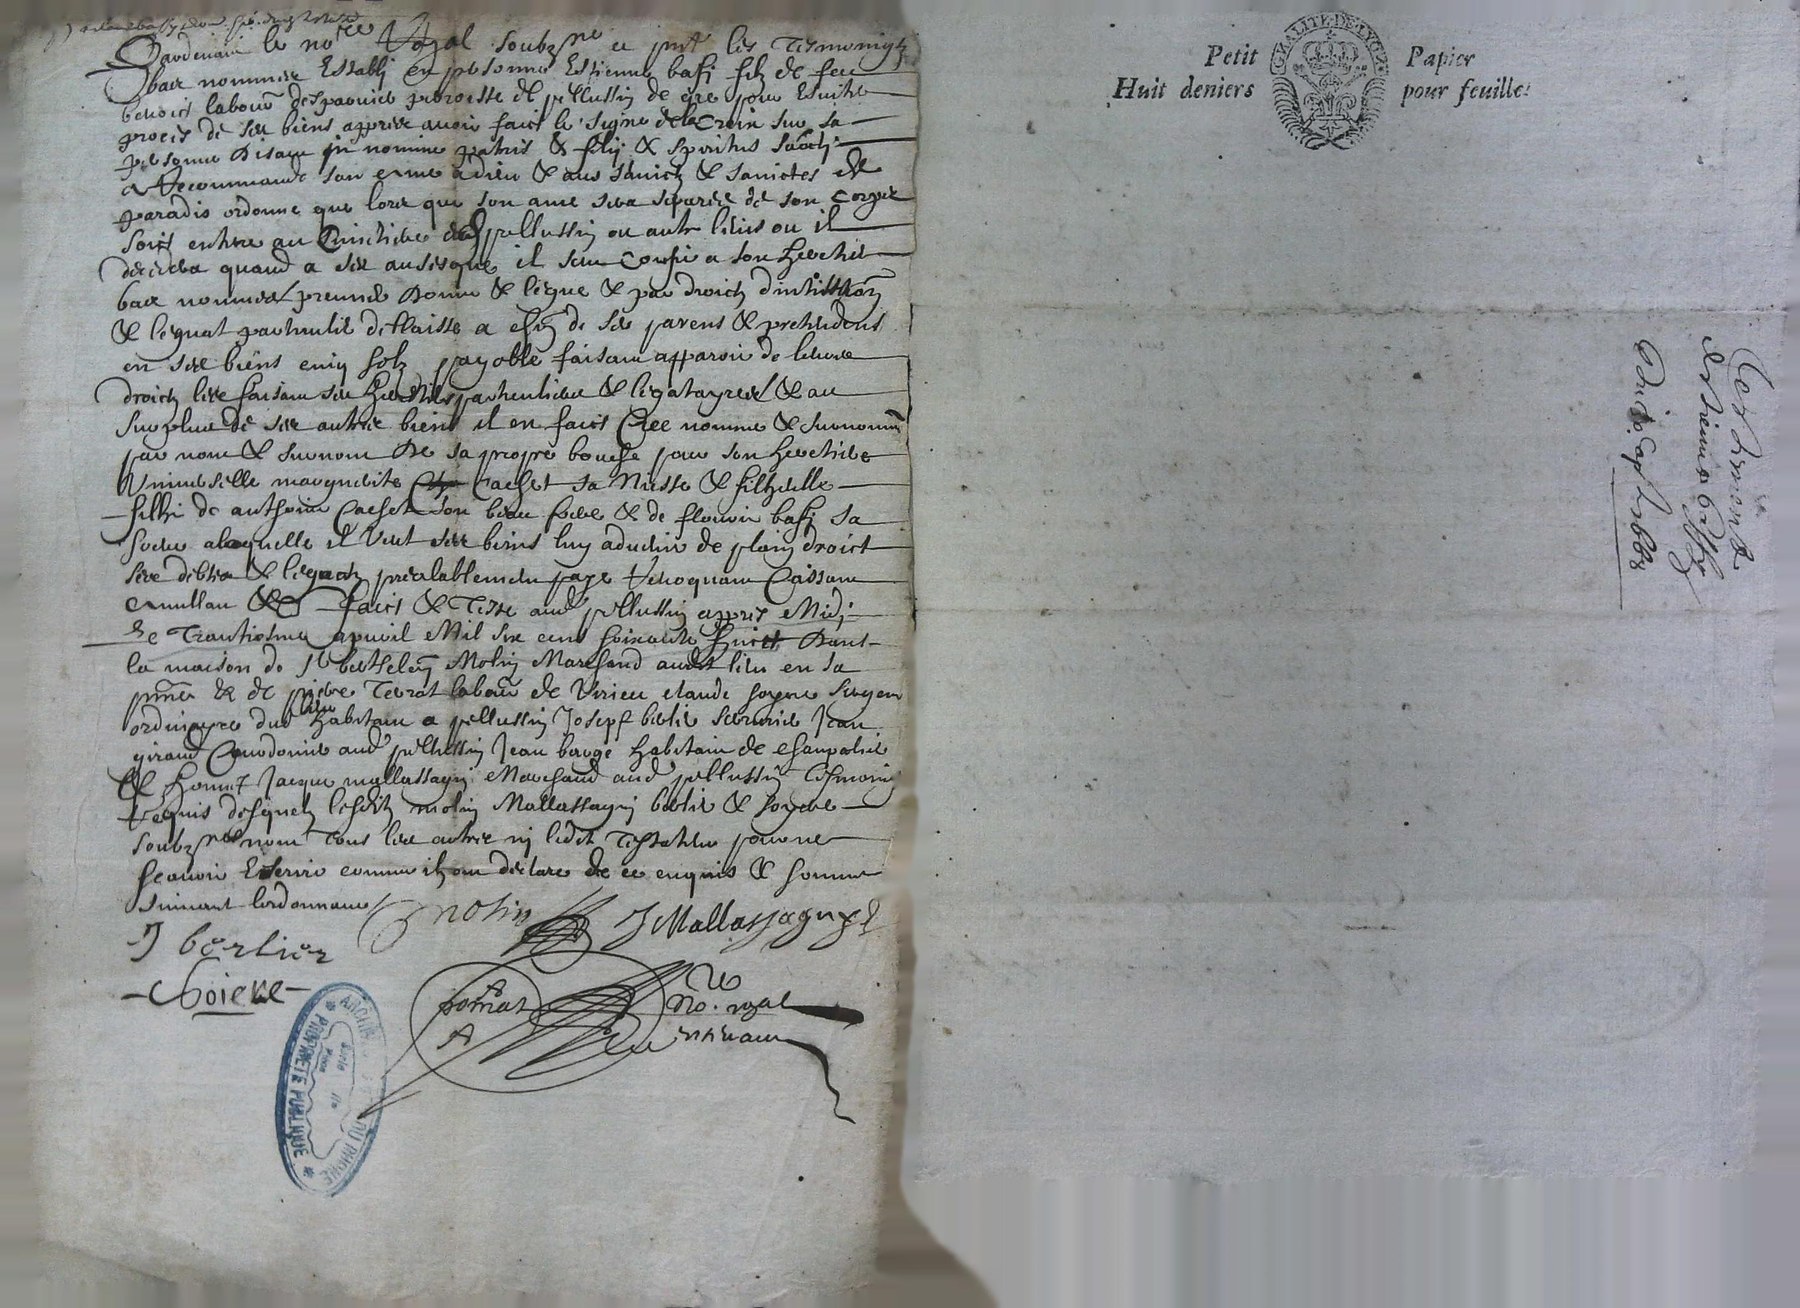 Pardevant le no.re Royal soubz.né et p.nt les Tesmoings
bas nommes Establj en personne Estienne bafj filz de feu
benoict labour despaonie parroisse de pellussin de gre pour Esvitter
proces de ses biens appres avoir faict le signe de la Croix sur sa
personne Disant in nomine patris & filij & spiritus sancti
a Recommandé son ame a dieu & aux sainctz & sainctes de
paradis ordonne que lors que son ame sera separee de son corps
soict enterre au Cimetiere de pellussin ou autre lieus ou il
decedera quand a ses auseques il sen confie a son heretier
bas nommes premier donne & legue & par droict dinstitution
& legat particulier delaisse a chun de ses parens & pretendens
en ses biens cinq solz payable faisant apparoir de leurs
droictz les faisant ses heretiers particuliers & legatayres & au
surplus de ses autres biens il en faict Cree nomme & surnomme
par nom & surnom de sa propre bouche pour son heretiere
Universelle marguerite Cachet sa Niesse & filheulle
filhe de anthoine Cachet son beau frere & de flourie bafj sa
soeur a laquelle il veut ses biens luy advenir de plain droict
ses debtes & legatz prealablement paye Revoquant Cassant
annullant &c faict & Passe aud pellussin appres Midj
le Trantiesme apvril Mil six cens soixante huict Dans
la maison de s.r berthelemy Molin Marchand audit lieu en sa
p.nce & de pierre Terrat labour de Virieu claude soyere sergent
ordinayre dud lieu habitant a pellussin Josepf berlie serrurie Jean
giraud Courdonnie aud pellussin Jean bouge habitant de chanpalie
& honnet Jacque mallassagny Marchand aud pellussin tesmoins
requis desquelz lesditz molin Mallassagny berlie & soyere
soubznes non tous les autres nj ledit Testateur pour ne
scavoir Escrire comme ilz ont declare de ce enquis & somme
suivant lordonnance
Molin J Mallassagny
J berlier
Soiere
No. royal
ARCHIVES DU RHONE
PROPRIÉTÉ PUBLIQUE
Petit Papier
Huit deniers pour feuille.
GNALITE·DE·LYON
Testament
Estienne baffie
avril 1668